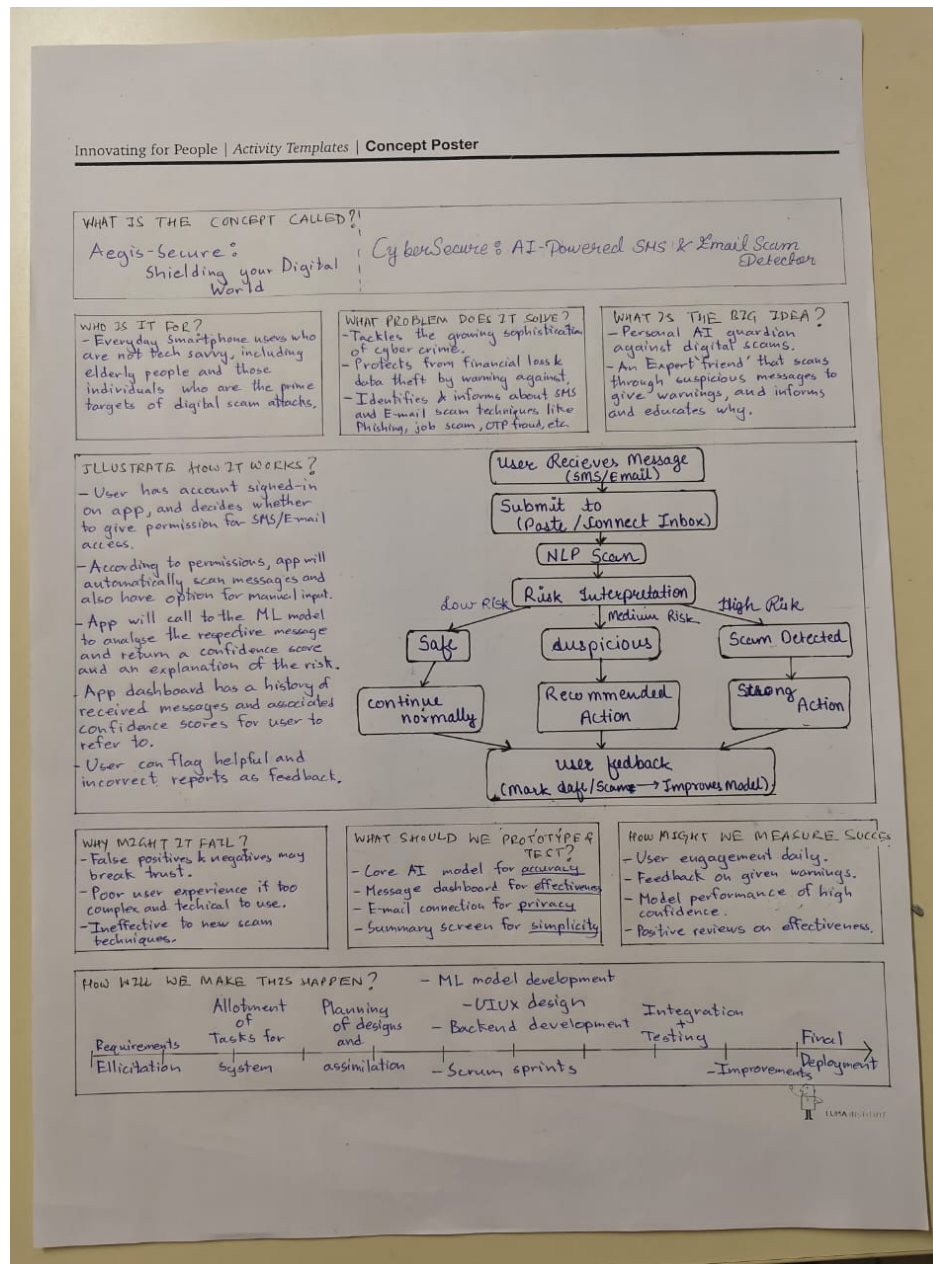 Innovating for People | Activity Templates | Concept Poster
WHAT IS THE CONCEPT CALLED?
Aegis-Secure:
Shielding your Digital
World
CyberSecure: AI-Powered SMS & Email Scam
Detector
WHO IS IT FOR?
- Everyday Smartphone users who
are not tech savvy, including
elderly people and those
individuals who are the prime
targets of digital scam attacks.
WHAT PROBLEM DOES IT SOLVE?
- Tackles the growing sophistication
of cyber crime.
- Protects from financial loss &
data theft by warning against.
- Identifies & informs about SMS
and E-mail scam techniques like
Phishing, job scam, OTP fraud, etc.
WHAT IS THE BIG IDEA?
- Personal AI guardian
against digital scams.
- An Expert 'friend' that scans
through suspicious messages to
give warnings, and informs
and educates why.
ILLUSTRATE HOW IT WORKS?
- User has account signed-in
on app, and decides whether
to give permission for SMS/E-mail
access.
- According to permissions, app will
automatically scan messages and
also have option for manual input.
- App will call to the ML model
to analyse the respective message
and return a confidence score
and an explanation of the risk.
- App dashboard has a history of
received messages and associated
confidence scores for user to
refer to.
- User can flag helpful and
incorrect reports as feedback.
User Recieves Message
(SMS/Email)
Submit to
(Paste/Connect Inbox)
NLP Scan
Risk Interpretation
Low Risk
Medium Risk
High Risk
Safe
Suspicious
Scam Detected
continue
normally
Recommended
Action
Strong
Action
User feedback
(Mark safe/Scam → Improves Model)
WHY MIGHT IT FAIL?
- False positives & negatives may
break trust.
- Poor user experience if too
complex and techical to use.
- Ineffective to new scam
techniques.
WHAT SHOULD WE PROTOTYPE &
TEST?
- Core AI model for accuracy
- Message dashboard for effectiveness
- E-mail connection for privacy
- Summary screen for simplicity
HOW MIGHT WE MEASURE SUCCES
- User engagement daily.
- Feedback on given warnings.
- Model performance of high
confidence.
- Positive reviews on effectiveness.
HOW WILL WE MAKE THIS HAPPEN?
Requirements
Ellicitation
Allotment
of
Tasks for
system
Planning
of designs
and
assimilation
- ML model development
- UIUX design
- Backend development
- Scrum sprints
Integration
+
Testing
- Improvements
Final
Deployment
LUMA INSTITUTE